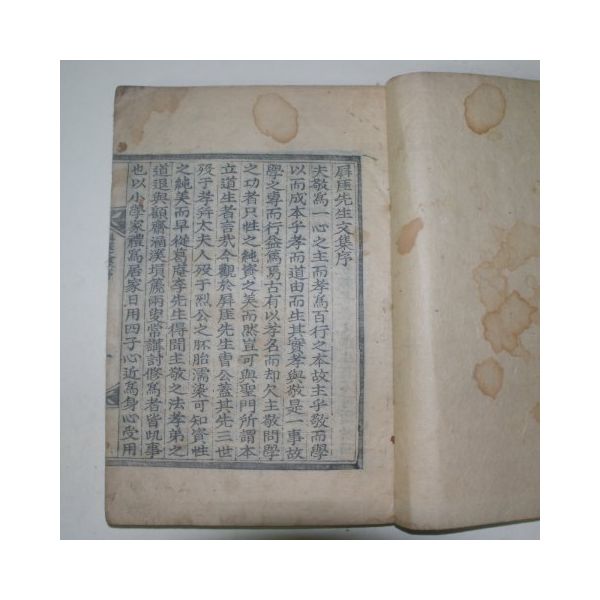 屛厓先生文集序
夫敬爲一心之主而孝爲百行之本故主乎敬而學
以而成本乎孝而道由而生其實孝與敬是一事故
學之專而行益篤焉古有以孝名而却欠主敬問學
之功者只性之純資之美而然豈可與聖門所謂本
立道生者言哉今觀於屛厓先生曺公蓋其先三世
歿于孝䄵太夫人歿于烈公之胚胎濡染可知資性
之純美而早從葛庵李先生得聞主敬之法孝弟之
道退與顧齋漏漢墳篪兩叟常講討修爲者皆此事
也以小學家禮爲居家日用四子心近爲身心受用